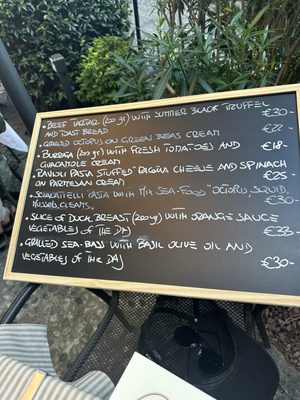 • BEEF TARTAR (200 gr) WITH SUMMER BLACK TRUFFEL AND TOAST BREAD €30-
• GRILLED OCTOPUS ON GREEN BEAS CREAM €22-
• BURRATA (200 gr) WITH FRESH TOMATOES AND GUACAMOLE CREAM €18-
• RAVIOLI PASTA STUFFED RICOTTA CHEESE AND SPINACH ON PARMESAN CREAM €25
• PASTA WITH MIX SEA-FOOD "OCTOPUS SQUID, €30-
• SLICE OF DUCK BREAST (200 gr) WITH ORANGE SAUCE VEGETABLES OF THE DAY €33-
• GRILLED SEA-BASS WITH BASIL OLIVE OIL AND VEGETABLES OF THE DAY €30-